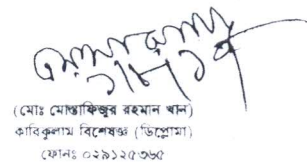 (মোঃ মোস্তাফিজুর রহমান খান)
কারিকুলাম বিশেষজ্ঞ (ডিপ্লোমা)
ফোনঃ ০২৯১২৫৩৬৫